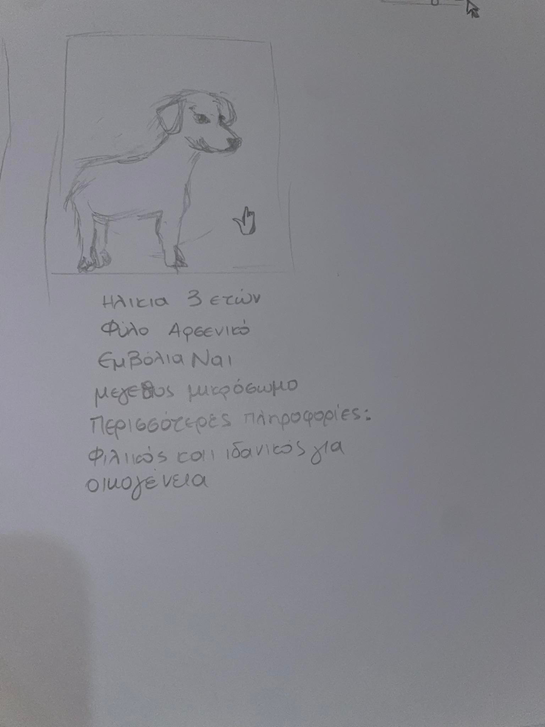 Ηλικια 3 ετών
Φύλο Αρσενικό
Εμβόλια Ναι
μεγεθος μικρόσωμο
Περισσότερες πληροφορίες:
Φιλικός και ιδανικος για
οικογένεια